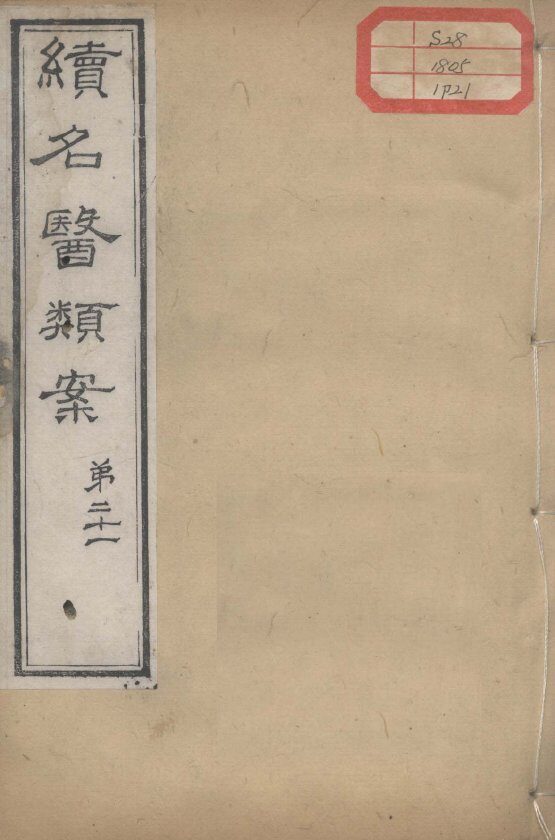 續名醫類案
弟二十一
S28
1805
1P21